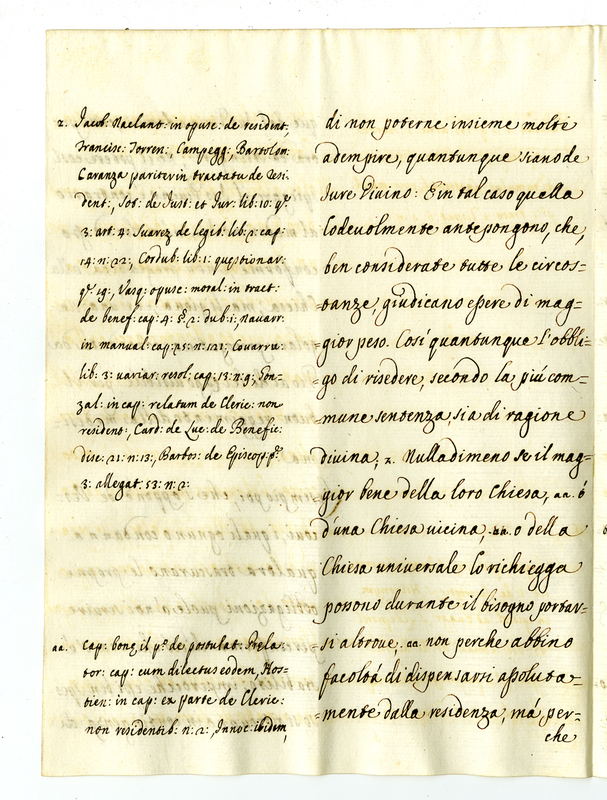 z. Jacob: Naclant: in opusc: de resident:
Francisc: Torren:, Campegg:, Bartolom:
Caranza pariter in tractatu de Resi
dent:, Sot: de Just: et Jur: lib: 10: q.
3: art: 4: Suarez de legib: lib: 2: cap:
14: n: 22:, Cordub: lib: 1: quęstionar:
q. 19:, Vasq: opusc: moral: in tract:
de benef: cap: 4: §. 2: dub: 1:, Navarr:
in manual: cap: 25: n: 121:, Covarru:
lib: 3: variar: resol: cap: 13: n: 9:, Gon-
zal: in cap: relatum de Cleric: non
resident:, Card: de Luc: de Benefic:
disc: 21: n: 13:, Barbos: de Episcop: p.
3: allegat: 53: n: 2:
aa. Cap: bonę il p.º de postulat: Prela
tor: cap: cum dilectus eodem, Hos=
tien: in cap: ex parte de Cleric:
non residentib: n: 2:, Innoc: ibidem,
di non poterne insieme molti
adempire, quantunque siano de
Jure Divino: E in tal caso quella
lodevolmente antepongono, che,
ben considerate tutte le circos=
=tanze, giudicano essere di mag=
=gior peso. Così quantunque l'obbli=
=go di risedere, secondo la più com=
=mune sentenza, sia di ragione
divina; z. Nulladimeno se il mag=
=gior bene della loro Chiesa, aa. ó
d'una Chiesa vicina, o della
Chiesa universale lo richiegga
possono durante il bisogno portar=
=si altrove. aa. non perche abbino
facoltá di dispensarsi assoluta=
=mente dalla residenza, má, per=
che